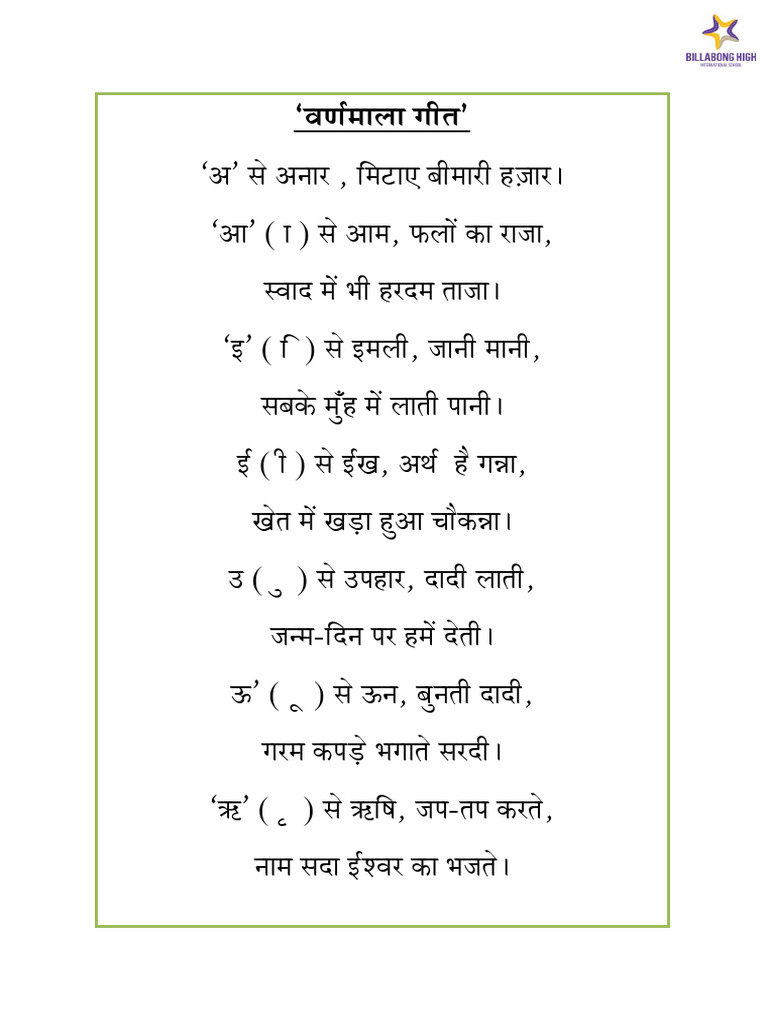 BILLABONG HIGH
INTERNATIONAL SCHOOL
‘वर्णमाला गीत’
‘अ’ से अनार , मिटाए बीमारी हज़ार।
‘आ’ ( ा ) से आम, फलों का राजा,
स्वाद में भी हरदम ताजा।
‘इ’ ( ि ) से इमली, जानी मानी,
सबके मुँह में लाती पानी।
ई ( ी ) से ईख, अर्थ है गन्ना,
खेत में खड़ा हुआ चौकन्ना।
उ ( ु ) से उपहार, दादी लाती,
जन्म-दिन पर हमें देती।
ऊ’ ( ू ) से ऊन, बुनती दादी,
गरम कपड़े भगाते सरदी।
‘ऋ’ ( ृ ) से ऋषि, जप-तप करते,
नाम सदा ईश्वर का भजते।